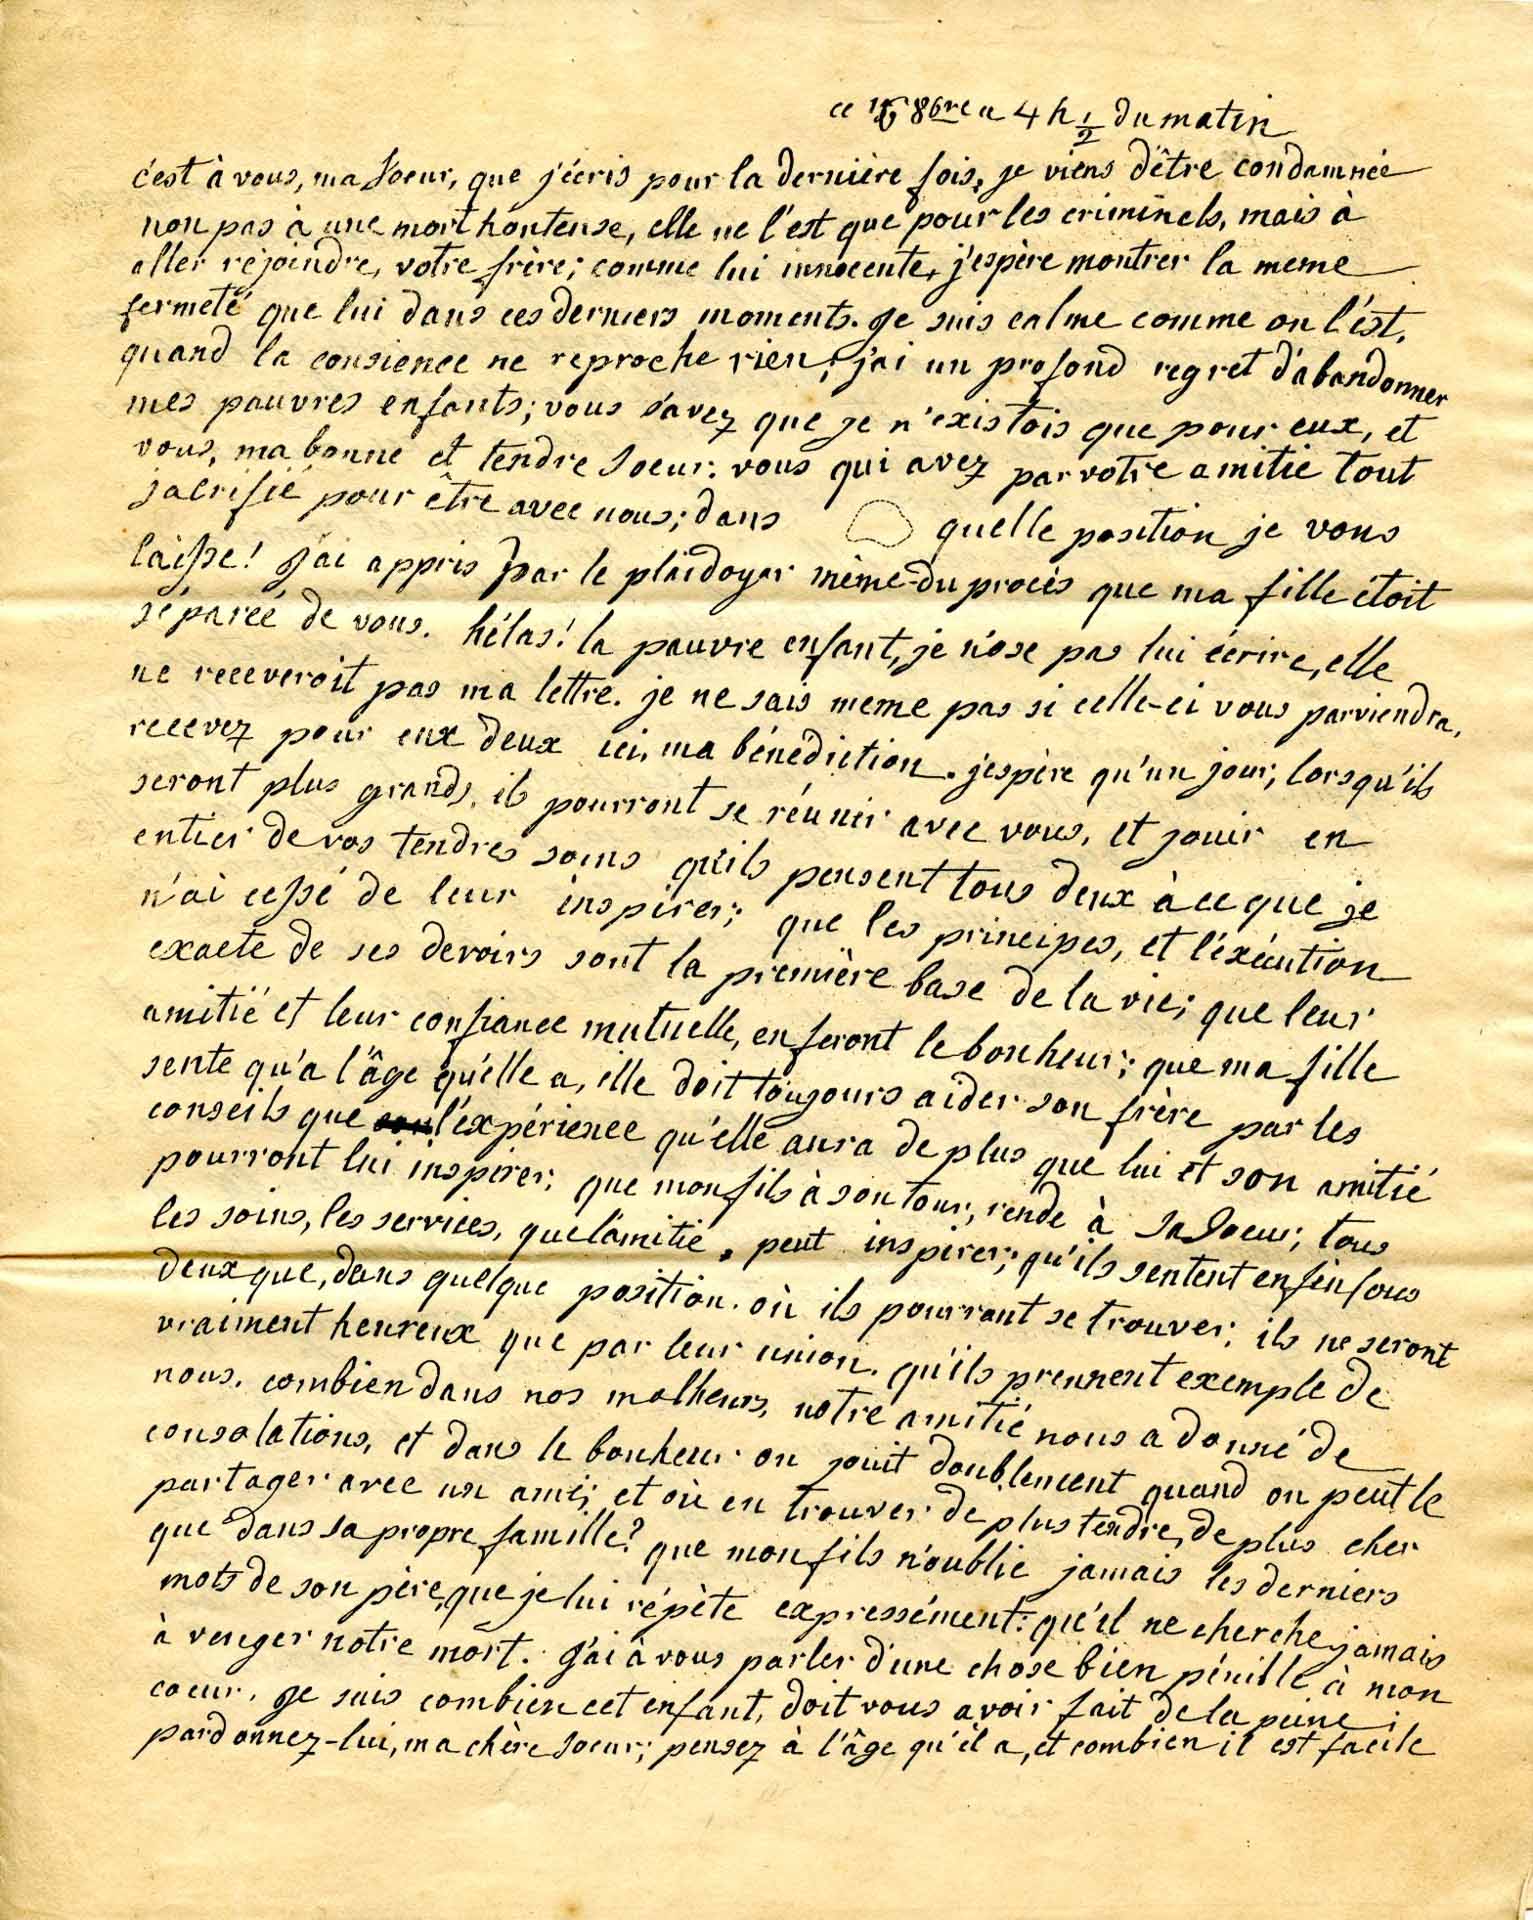 ce 16 8bre a 4 h 1/2 du matin
c'est à vous, ma soeur, que j'écris pour la dernière fois, je viens d'être condamnée
non pas à une mort honteuse, elle ne l'est que pour les criminels, mais à
aller rejoindre, votre frère; comme lui innocente, j'espère montrer la meme
fermeté que lui dans ces derniers moments. je suis calme comme on l'est,
quand la consience ne reproche rien; j'ai un profond regret d'abandonner
mes pauvres enfants; vous savez que je n'existois que pour eux, et
vous, ma bonne et tendre soeur: vous qui avez par votre amitié tout
sacrifié pour être avec nous; dans quelle position je vous
laisse! j'ai appris par le plaidoyer même du procès que ma fille étoit
séparée de vous. hélas! la pauvre enfant, je n'ose pas lui écrire, elle
ne receveroit pas ma lettre. je ne sais meme pas si celle-ci vous parviendra,
recevez pour eux deux ici, ma bénédiction. j'espère qu'un jour, lorsqu'ils
seront plus grands, ils pourront se réunir avec vous, et jouir en
entier de vos tendres soins qu'ils pensent tous deux à ce que je
n'ai cessé de leur inspirer; que les principes, et l'éxécution
exacte de ses devoirs sont la première base de la vie; que leur
amitié et leur confiance mutuelle, en feront le bonheur; que ma fille
sente qu'a l'âge qu'elle a, elle doit toujours aider son frère par les
conseils que l'expérience qu'elle aura de plus que lui et son amitié
pourront lui inspirer; que mon fils à son tour, rende à sa soeur, tous
les soins, les services, que l'amitié, peut inspirer; qu'ils sentent enfin tous
deux que, dans quelque position où ils pourront se trouver, ils ne seront
vraiment heureux que par leur union. qu'ils prennent exemple de
nous. combien dans nos malheurs, notre amitié nous a donné de
consolations, et dans le bonheur on jouit doublement quand on peut le
partager avec un ami; et où en trouver de plus tendre, de plus cher
que dans sa propre famille? que mon fils n'oublie jamais les derniers
mots de son père, que je lui répète expressément: qu'il ne cherche jamais
à venger notre mort. j'ai à vous parler d'une chose bien pénible à mon
coeur, je sais combien cet enfant, doit vous avoir fait de la peine;
pardonnez-lui, ma chère soeur; pensez à l'âge qu'il a, et combien il est facile